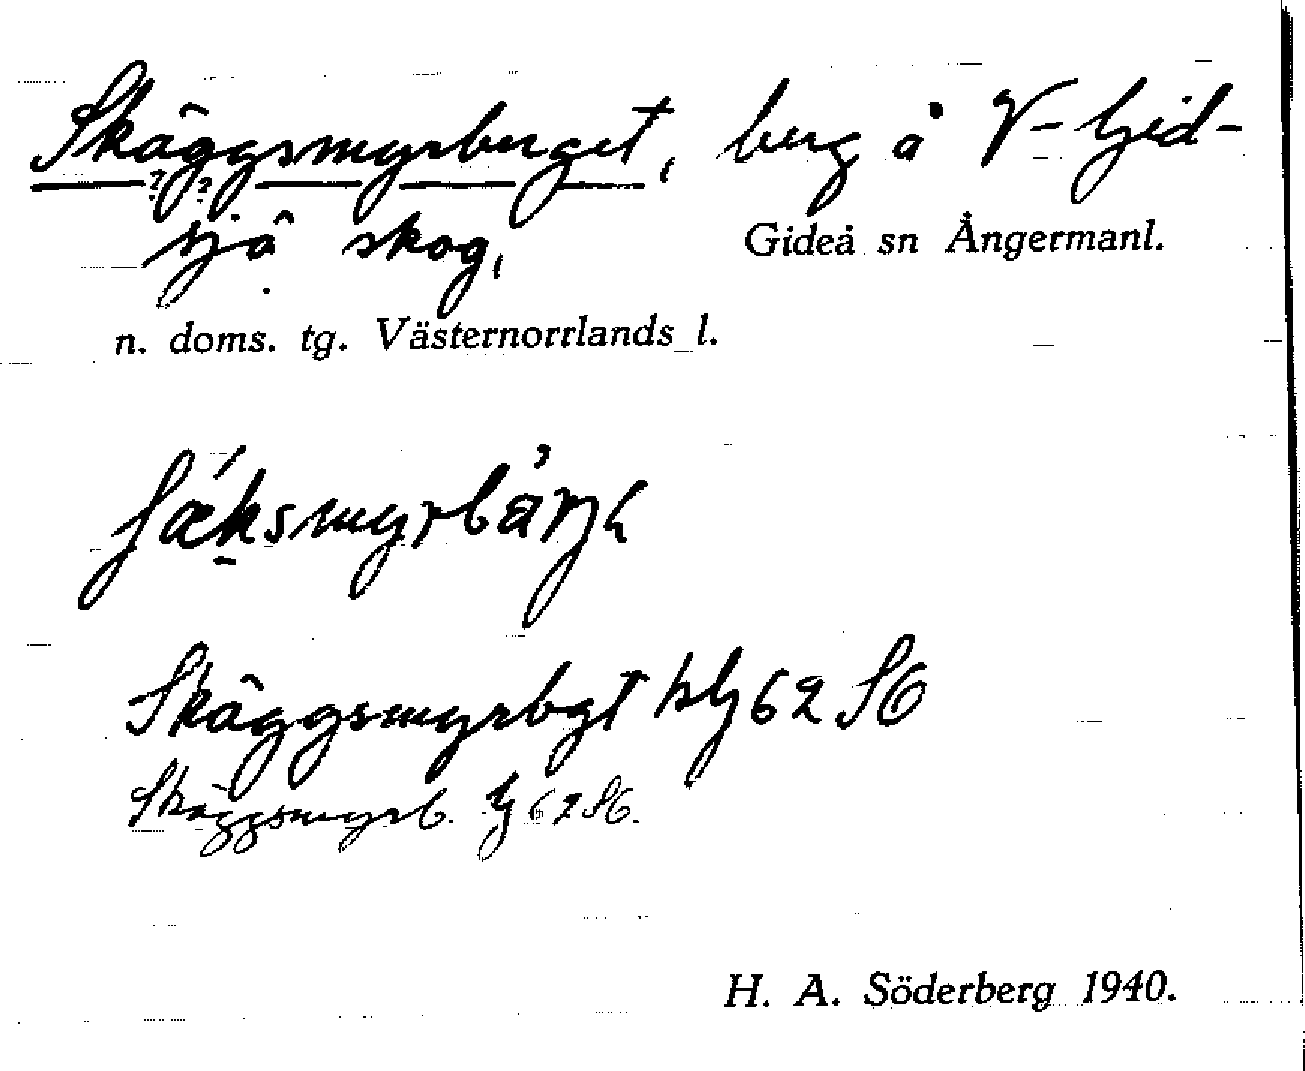 Skäggsmyrberget, berg å V-Gid-
sjö skog,
Gideå sn Ångermanl.
n. doms. tg. Västernorrlands l.
Skäggsmyrbgt
Skäggsmyrb. 62 SO.
H. A. Söderberg 1940.